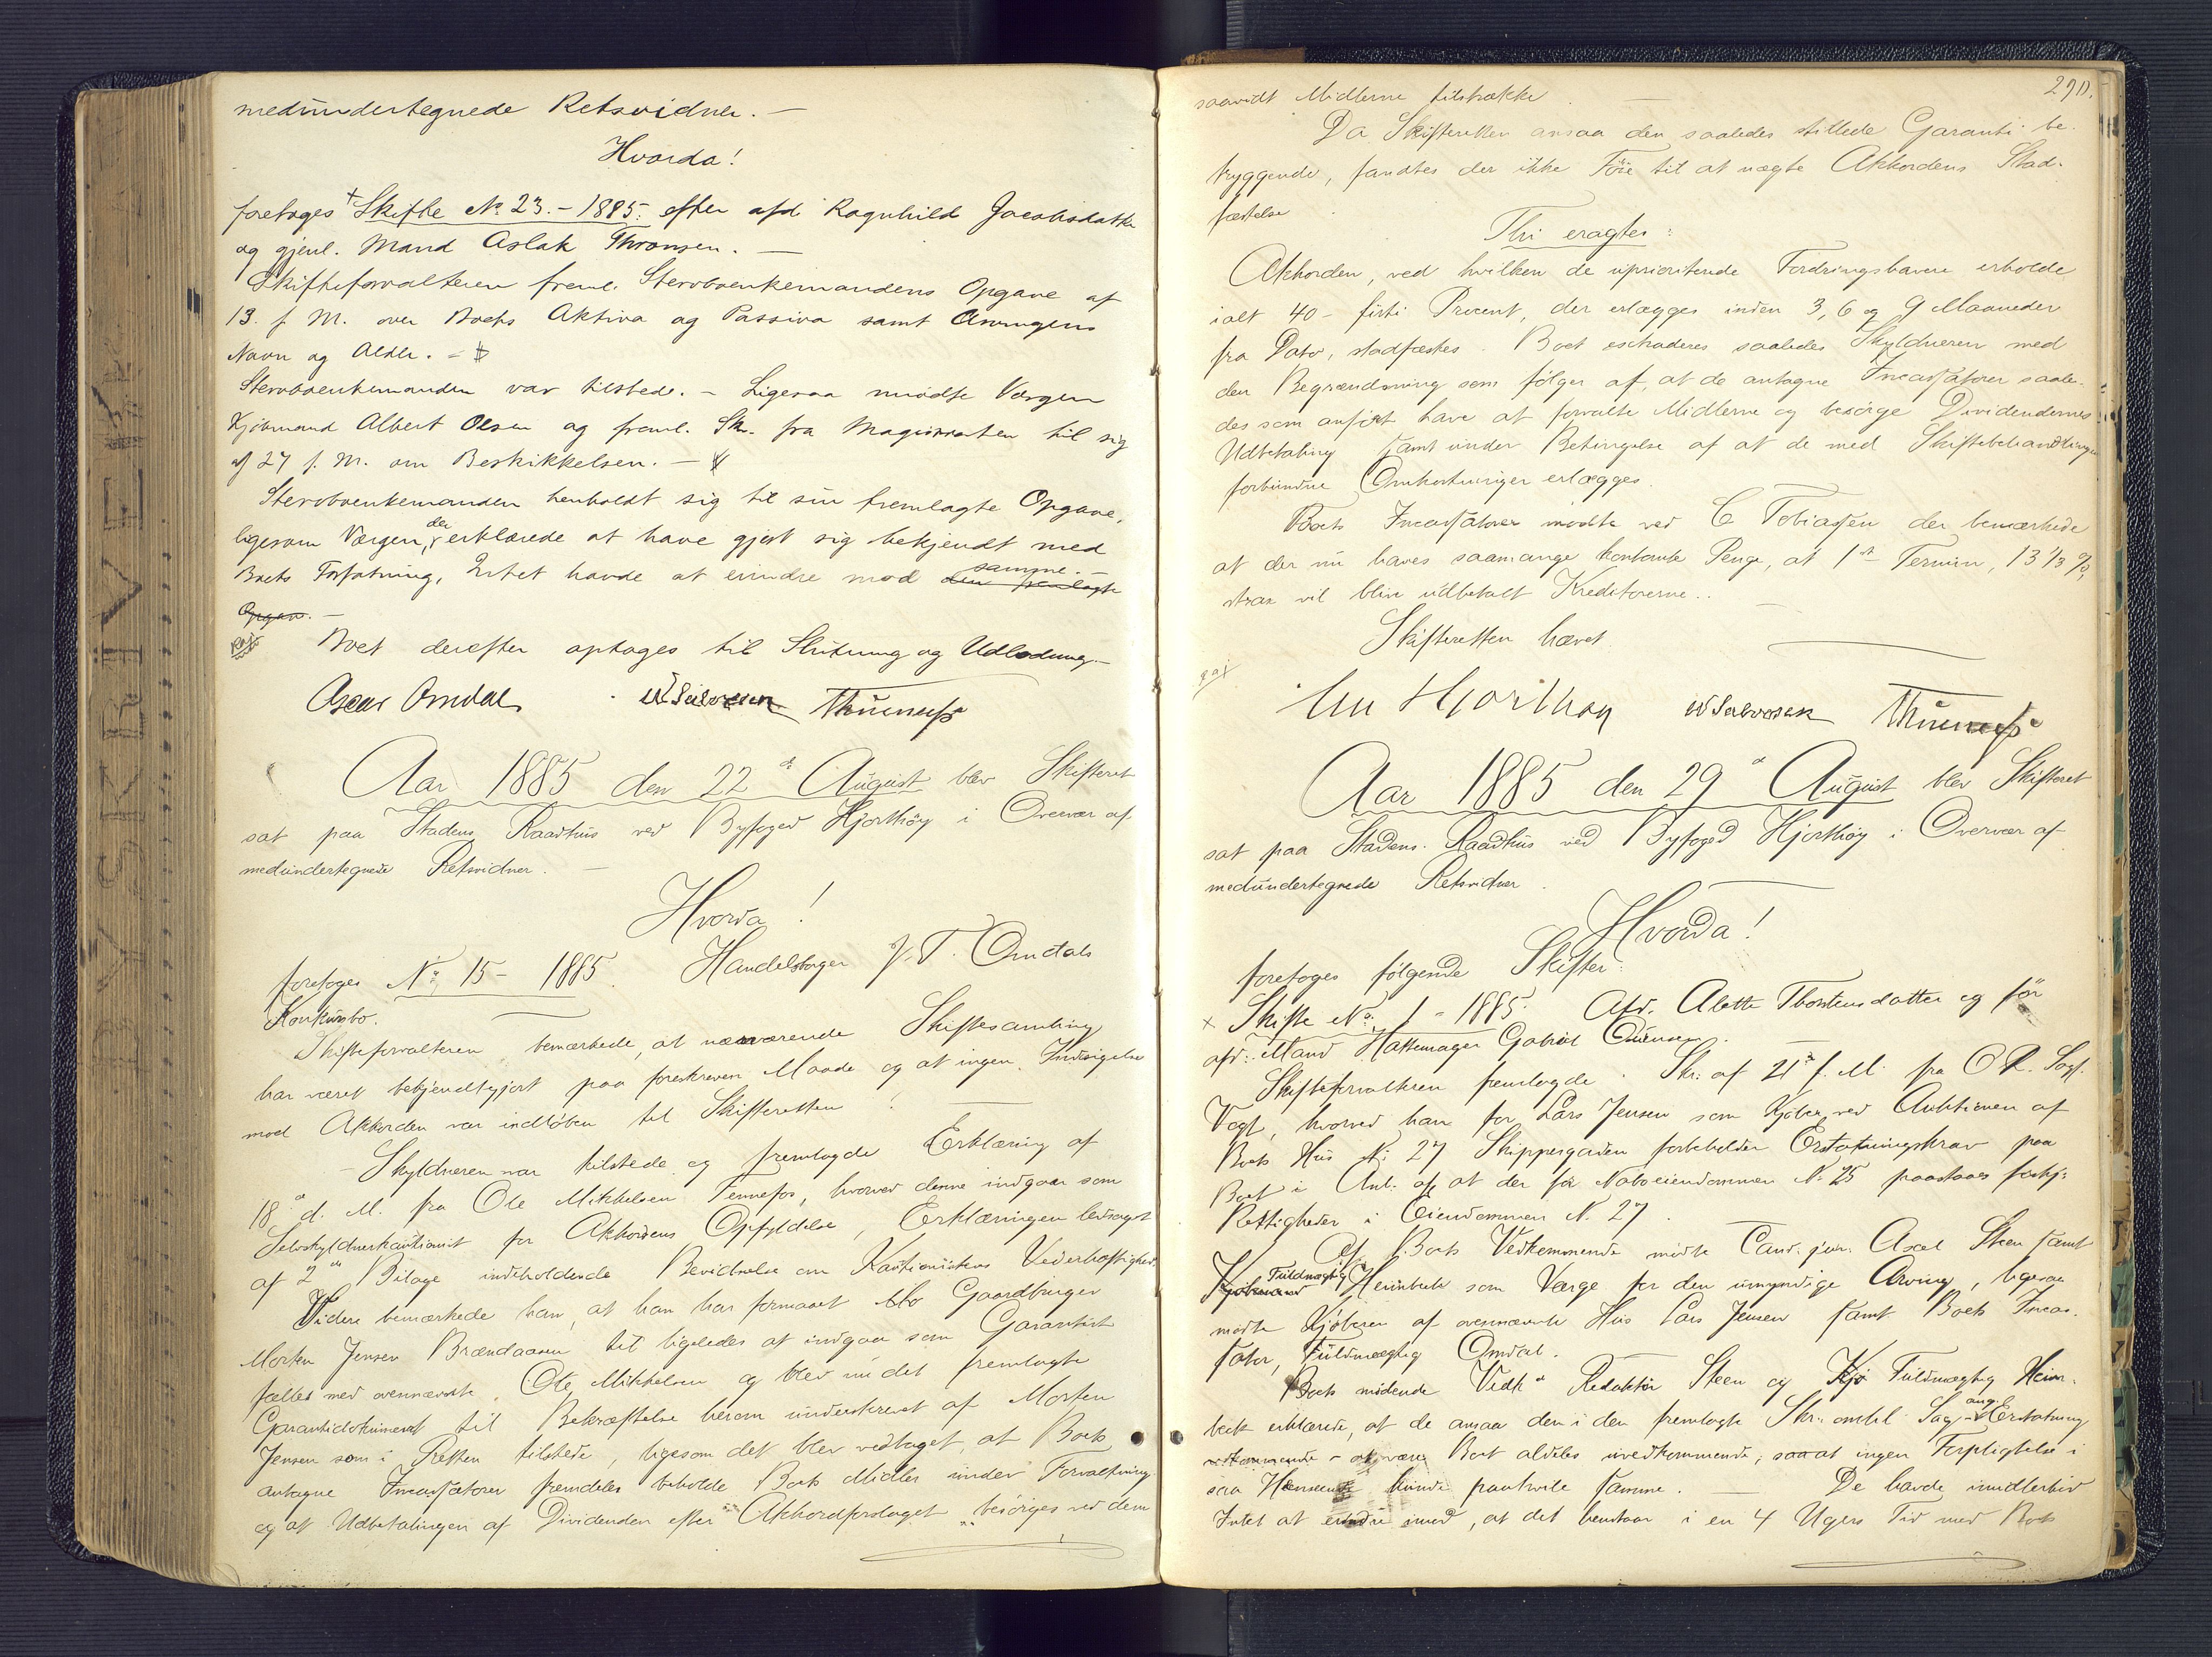 medundertegnede Retsvidner. —
Hvorda!
foretoges + Skifte No. 23. - 1885. efter afd Ragnhild Jacobsdatter
og gjenl. Mand Aslak Thronsen. —
Skifteforvalteren freml. Stervboenkemandens Opgave af
13. f. M. over Boets Aktiva og Passiva samt Arvingens
Navn og Alder. —
Stervboenkemanden var tilstede. - Ligesaa mødte Værgen
Kjøbmand Albert Olsen og freml. Skr. fra Magistraten til sig
af 27 f. M. om Beskikkelsen. —
Stervboenkemanden henholdt sig til sin fremlagte Opgave,
ligesom Værgen, der erklærede at have gjort sig bekjendt med
Boets Forfatning, Intet havde at erindre mod den fremlagte samme. -
Opgave. —
Boet derefter optoges til Slutning og Udlodning. -
Oscar Omdal W Salvesen
Aar 1885 den 22de August blev Skifteret
sat paa Stadens Raadhus ved Byfoged Hjorthøy i Overvær af
medundertegnede Retsvidner. —
Hvorda!
foretoges No. 15 - 1885. Handelsborger J. T. Omdals
Konkursbo.
Skifteforvalteren bemærkede, at nærværende Skiftesamling
har været bekjendtgjort paa foreskreven Maade og at ingen Indsigelse
mod Akkorden var indløben til Skifteretten. —
- Skyldneren var tilstede og fremlagde Erklæring af
18de d. M. fra Ole Mikkelsen Fennefos, hvorved denne indgaar som
Selvskyldnerkautionist for Akkordens Opfyldelse, Erklæringen ledsaget
af 2de Bilage indeholdende Bevidnelse om Kautionistens Vederhæftighed.
Videre bemærkede han, at han har formaaet Gaardbruger
Morten Jensen Brændaasen til ligeledes at indgaa som Garantist
fælles med ovennævnte Ole Mikkelsen og blev nu det fremlagte
Garantidokument til Bekræftelse herom underskrevet af Morten
Jensen som i Retten tilstede, ligesom det blev vedtaget, at Boets
antagne Incassatorer fremdeles beholde Boets Midler under Forvaltning
og at Udbetalingen af Dividenden efter Akkordforslaget besørges ved dem
290.
saavidt Midlerne tilstrække. —
Da Skifteretten ansaa den saaledes stillede Garanti be-
tryggende, fandtes der ikke Føie til at nægte Akkordens Stad-
fæstelse.
Thi eragtes:
Akkorden, ved hvilken de uprioriterede Fordringshavere erholde
ialt 40 - firti Procent, der erlægges inden 3, 6 og 9 Maaneder
fra Dato, stadfæstes. Boet extraderes saaledes Skyldneren med
den Begrændsning som følger af, at de antagne Incassatorer saale-
des som anført have at forvalte Midlerne og besørge Dividendernes
Udbetaling samt under Betingelse af at de med Skiftebehandlingen
forbundne Omkostninger erlægges.
Boets Incassatorer mødte ved C Tobiassen der bemærkede
at der nu haves saamange kontante Penge, at 1ste Termin, 13 1/3 %,
strax vil blive udbetalt Kreditorerne. —
Skifteretten hævet
Hjorthøy W Salvesen
Aar 1885 den 29de August blev Skifteret
sat paa Stadens Raadhus ved Byfoged Hjorthøy i Overvær af
medundertegnede Retsvidner.
Hvorda!
foretoges følgende Skifter:
x Skifte No. 1 - 1885. Afd. Alette Thorstensdatter og før
afd. Mand Hattemager Gabriel
Skifteforvalteren fremlagde Skr: af 21de f. M. fra O. R. Sagf.
Vogt, hvorved han for Lars Jensen som Kjøber ved Auktionen af
Boets Hus No. 27 Skippergaden forbeholder Erstatningskrav paa
Boet i Anl. af at der for Naboeiendommen No. 25 paastaaes forskj:
Rettigheder i Eiendommen N. 27.
Af Boets Vedkommende mødte Cand. jur. Axel Steen samt
Kjøbmand Fuldmægtig Heimbeck som Værge for den umyndige Arving, ligesaa
mødte Kjøberen af ovennævnte Hus Lars Jensen samt Boets Incas-
sator, Fuldmægtig Omdal.
Boets mødende Vedk. Redaktør Steen og Kjø Fuldmægtig Heim-
beck erklærede, at de ansaa den i den fremlagte Skr. omhl. Sag ang. Erstatning
vedkommende - at være Boet aldeles uvedkommende, saaat ingen Forpligtelse i
saa Henseende kunde paahvile samme. — De havde imidlertid
Intet at erindre imod, at det henstaar i en 4 Ugers Tid med Boets